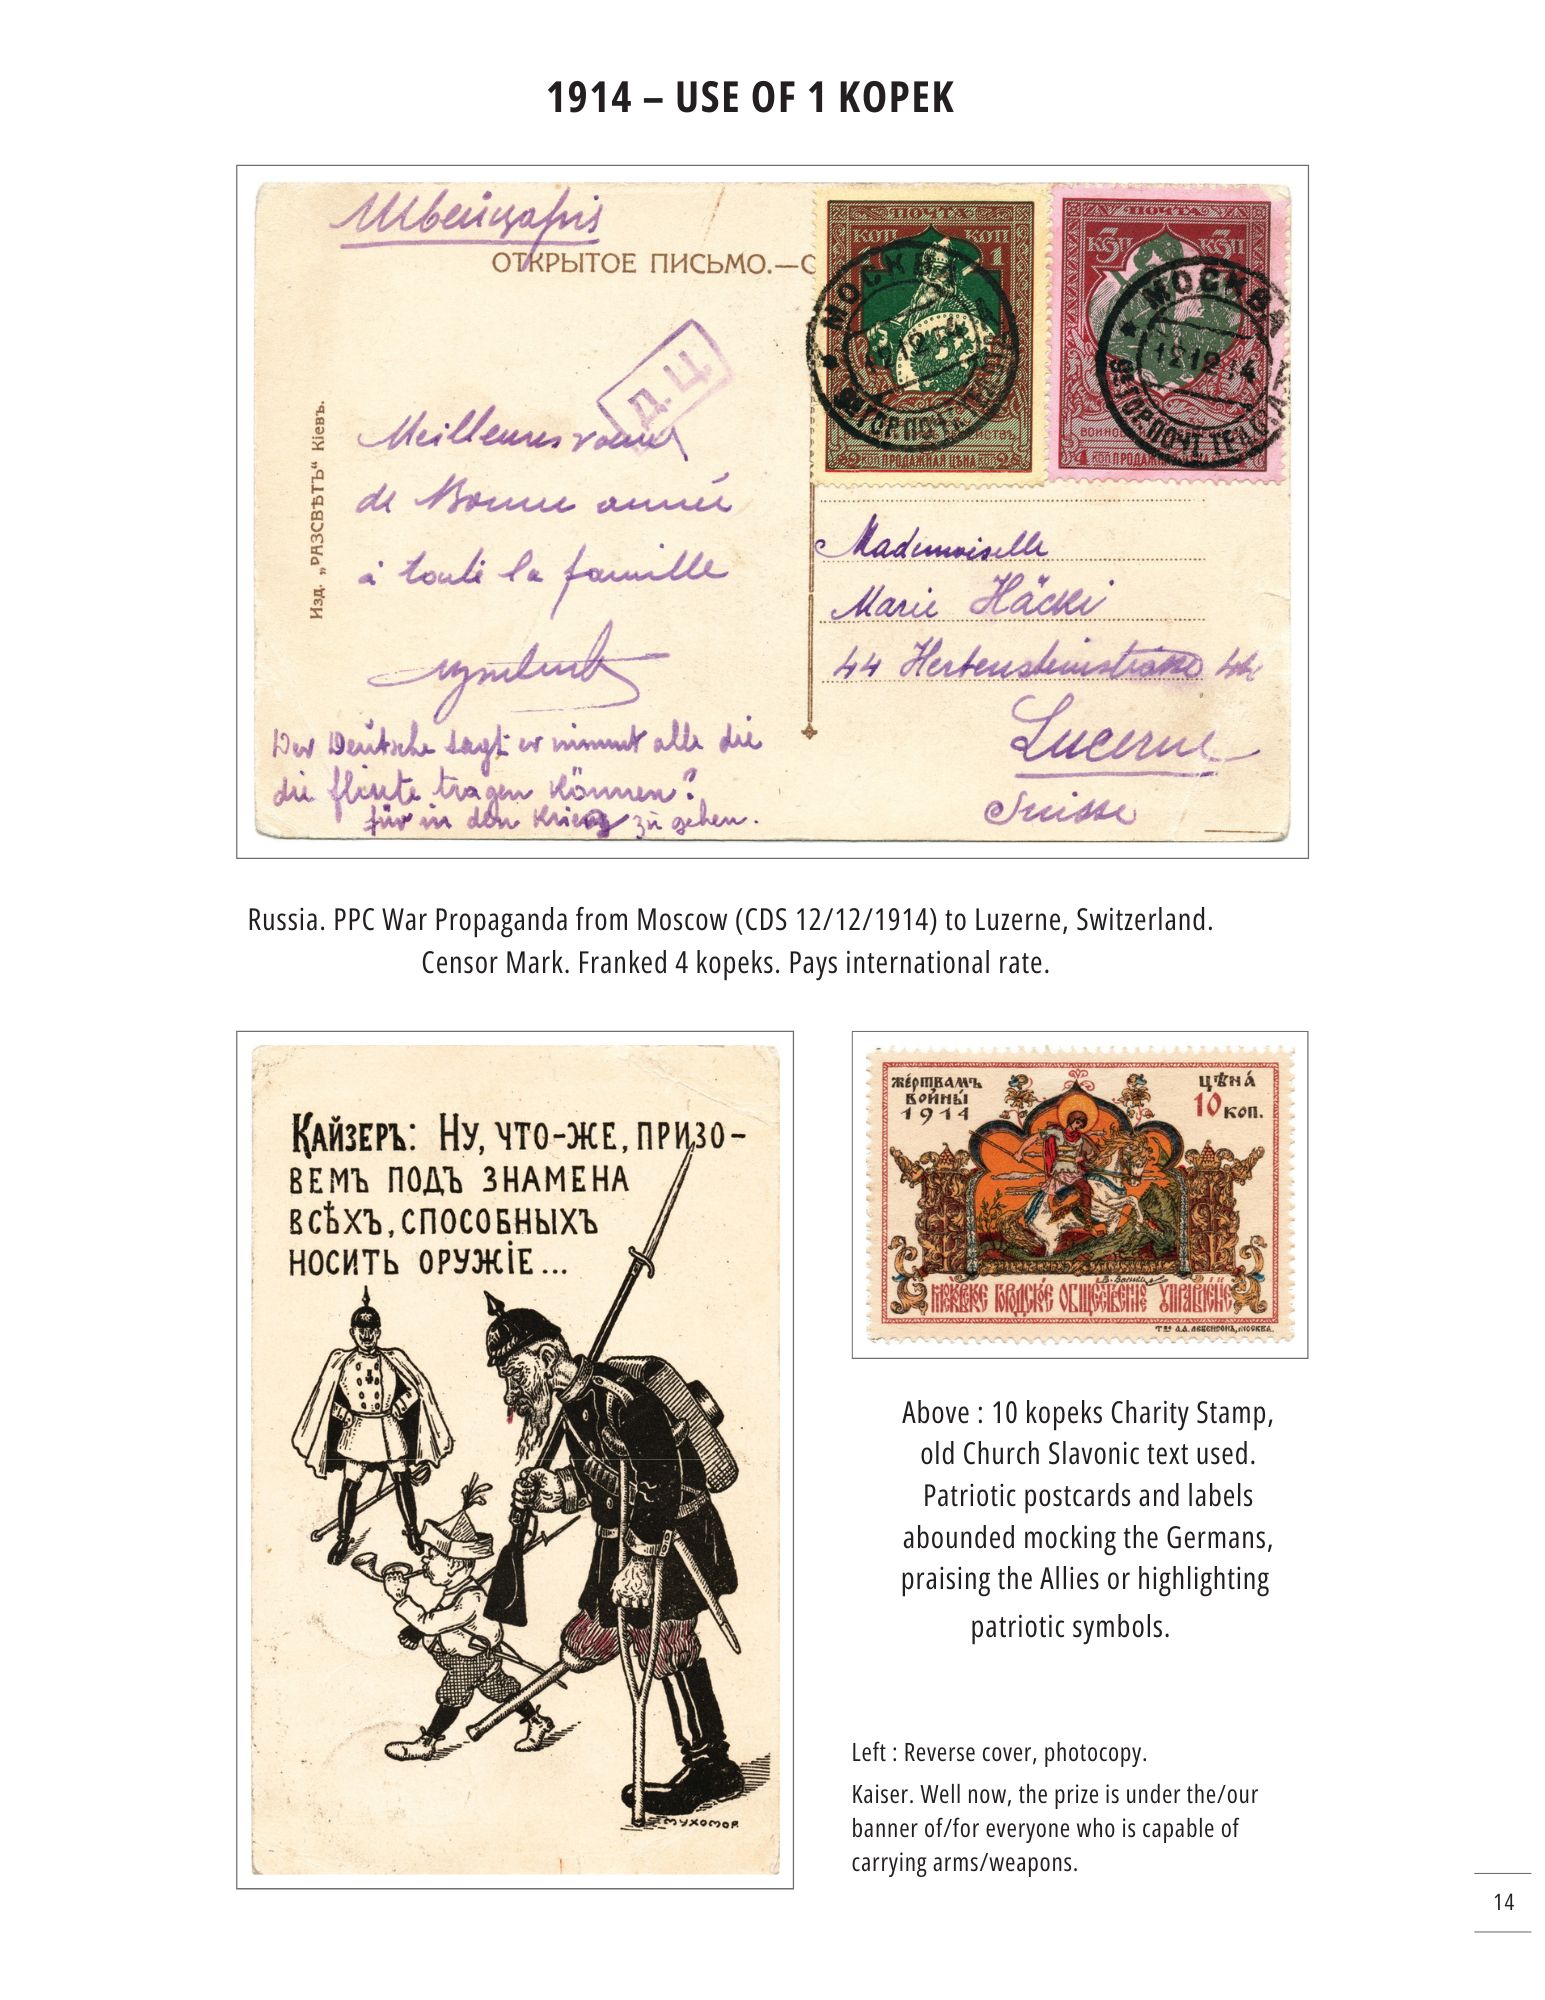 1914 – USE OF 1 KOPEK
Швейцарія
ОТКРЫТОЕ ПИСЬМО.—С
ПОЧТА
КОП КОП
1 1
МОСКВА
12 12 14
ГОР. ПОЧТ. ТЕЛ.
2 КОП ПРОДАЖНАЯ ЦѢНА КОП 2
ПОЧТА
3 КОП 3 КОП
МОСКВА
12 12 14
ГОР. ПОЧТ. ТЕЛ.
4 КОП ПРОДАЖНАЯ
Д. Ц.
Изд. „РАЗСВѢТЪ“ Кіевъ.
Meilleures voeux
de Bonne année
à toute la famille
Der Deutsche sagt er nimmt alle die
die flinte tragen können?
für in den Krieg zu gehen.
Mademoiselle
Marie Häcki
44 Hertensteinstrasse 44
Lucerne
Suisse
Russia. PPC War Propaganda from Moscow (CDS 12/12/1914) to Luzerne, Switzerland.
Censor Mark. Franked 4 kopeks. Pays international rate.
Кайзеръ: Ну, что-же, призо-
вемъ подъ знамена
всѣхъ, способныхъ
носить оружіе...
МУХОМОР
жертвамъ
войны
1914
цѣна
10 коп.
Московское городское общественное управление
Т-во А.А. Левенсонъ, Москва.
Above : 10 kopeks Charity Stamp,
old Church Slavonic text used.
Patriotic postcards and labels
abounded mocking the Germans,
praising the Allies or highlighting
patriotic symbols.
Left : Reverse cover, photocopy.
Kaiser. Well now, the prize is under the/our
banner of/for everyone who is capable of
carrying arms/weapons.
14